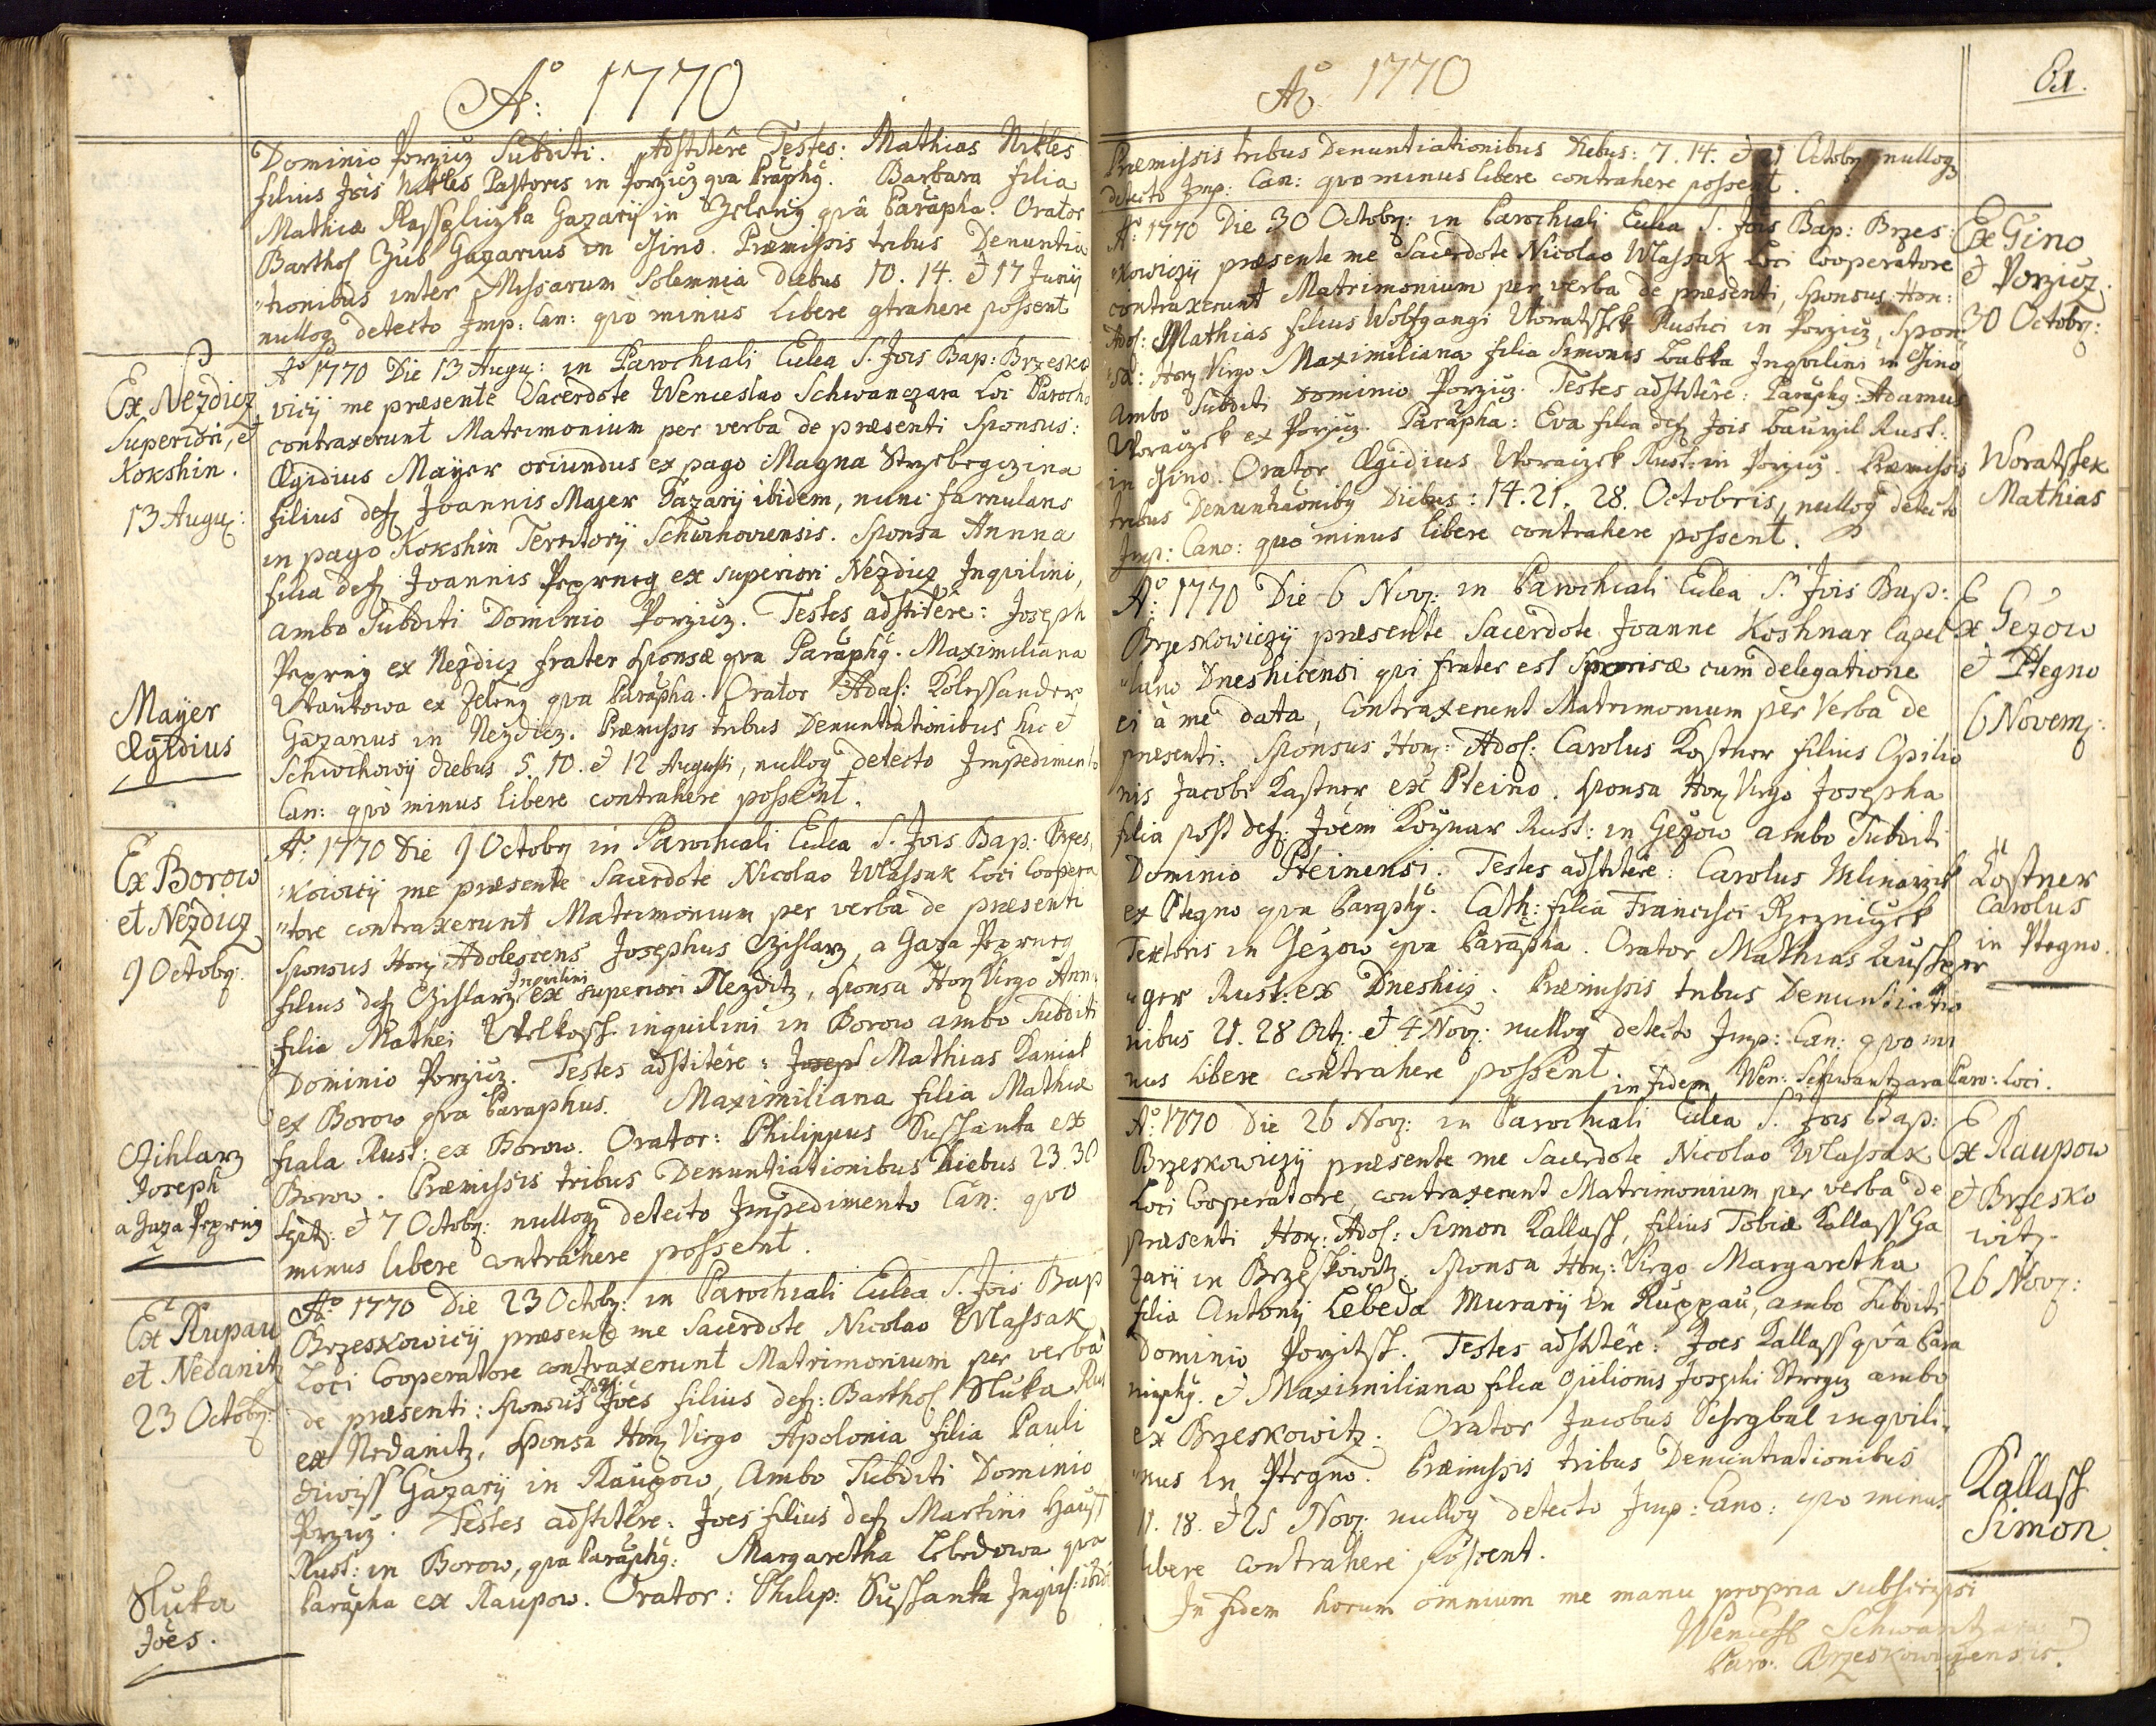 Ao: 1770
Dominio Porzicz Subditi. Adstitêre Testes: Mathias Nikles
filius Jois Nikles Pastoris in Porzicz qva Praphg. Barbara filia
Mathiæ Gazarij in Zeleny qvâ Parapha. Orator
Barthol Zub Gazarius in Gino. Præmissis tribus Denuntia
"tionibus inter Missarum Solemnia diebus 10. 14. et 17 Junij
nulloq detecto Imp: Can: qvò minus libere gtrahere possent
Ex Nezdicz
Superiori, et
Kokshin.
13 Augu:
Mayer
Ægidius
Ao 1770 Die 13 Augu: in Parochiali Eulea S. Jois Bap: Brzesko
vicij me præsente Sacerdote Wenceslao Schwanczara Loci Parocho
contraxerunt Matrimonium per verba de præsenti Sponsus:
Ægidius Mayer oriundus ex pago Magna Strzebegczina
filius def Joannis Majer Gazarij ibidem, nunc famulans
in pago Kokshin Territorij Schwihoviensis. Sponsa Annna
filia def Joannis Peprneg ex superiori Nezdicz Inqvilini,
ambo Subditi Dominio Porzicz. Testes adstitêre: Joseph
Peprnÿ ex Nezdicz frater sponsæ qva Paraphg. Maximiliana
Wankowa ex Zeleny qva Parapha. Orator Adal: Kolessander
Gazarius in Nezdicz. Præmissis tribus Denuntiationibus hic et
Schwihowij diebus 5. 10. et 12 Augusti, nulloq detecto Impedimento
Can: qvò minus libere contrahere possent.
Ex Borow
et Nezdicz
9 Octobr:
Czihlarz
Joseph
a Gaza Peprnÿ
Ao: 1770 Die 9 Octobr in Parochiali Eulea S. Jois Bap: Brzes,
"kowicij me præsente Sacerdote Nicolao Wlassak Loci Coopera
"tore contraxerunt Matrimonium per verba de præsenti
Sponsus Hon: Adolescens Josephus Czihlarz, a Gaza Peprneg
Inqvilini
filius def Czihlarz ex superiori Nezditz, sponsa Hon Virgo Ann:
filia Mathei Welkoss inquilini in Borow ambo Subditi
Dominio Porzicz. Testes adstitêre: Joseph Mathias Kanial
ex Borow qva Paraphus. Maximiliana filia Mathiæ
fiala Rust: ex Borow. Orator: Philippus Sussanka ex
Borow. Præmissis tribus Denuntiationibus Diebus 23. 30
Sept: et 7 Octobr: nulloq detecto Impedimento Can: qvo
minus libere contrahere possent.
Ex Rupau
et Nedanitz
23 Octobr:
Sluka
Joês.
Ao: 1770 Die 23 Octobr: in Parochiali Eulea S. Jois Bap
Brzeskowicij præsente me Sacerdote Nicolao Wlassak
Loci Cooperatore contraxerunt Matrimonium per verba
de præsenti: sponsus Joês filius def: Barthol Sluka Rus
ex Nedanitz, sponsa Hon Virgo Apolonia filia Pauli
diwiss Gazarij in Raupow, Ambo Subditi Dominio
Porzicz. Testes adstitêre: Joes filius def Martini Haust
Rust: in Borow, qva Paraphg: Margaretha Lebedowa qva
Parapha ex Raupow. Orator: Philip: Sussanka Inqvil: ibid
Ao 1770
61.
Præmissis tribus Denuntiationibus Diebus: 7. 14. et 21 Octobr nulloq
detecto Imp: Can: qvo minus libere contrahere possent.
Ao: 1770 Die 30 Octobr: in Parochiali Eulea S. Jois Bap: Brzes:
"kowiczij præsente me Sacerdote Nicolao Wlassak Loci Cooperatore
contraxerunt Matrimonium per verba de præsenti, sponsus Hon:
Adol: Mathias filius Wolfgangi Woratshek Rustici in Porzicz, Spon
"sa: Hon Virgo Maximiliana filia Simonis Babka Inqvilini in Gino
Ambo Subditi Dominio Porzicz. Testes adstitêre: Paraphg: Adamus
Woraczek ex Porzicz. Parapha: Eva filia def Jois Rust:
in Gino. Orator Ægidius Woraczek Rust: in Porzicz. Præmissis
tribus Denuntiationibg Diebus: 14. 21. 28. Octobris, nulloq detecto
Imp: Cano: quo minus libere contrahere possent.
Ex Gino
et Porzicz.
30 Octobr:
Woratshek
Mathias
Ao: 1770 Die 6 Nov: in Parochiali Eulea S. Jois Bap:
Brzeskowiczij præsente Sacerdote Joanne Koshnar Capel
"lano Dneshicensi qvi frater est Sponsæ cum delegatione
ei à me data, Contraxerunt Matrimonium per Verba de
præsenti: Sponsus Hon: Adol: Carolus Kostner filius Opilio
nis Jacobi Kastner ex Pteino. Sponsa Hon Virgo Josepha
filia post def: Joêm Koznar Rust: in Gezow ambo Subditi
Dominio Pteinensi. Testes adstitêre: Carolus Mlinarzik
ex Ptegno qva Parqphg. Cath: filia Francisci Rzezniczek
Textoris in Gezow qva Parapha. Orator Mathias
"ger Rust: ex Dneshicz. Præmissis tribus Denuntiatio
nibus 21. 28 Oct: et 4 Nov: nulloq detecto Imp: Can: qvo mi
nus libere contrahere possent. in fidem Wen: Schwantzara Paro: Loci.
Ex Gezow
et Ptegno
6 Novem:
Kostner
Carolus
in Ptegno.
Ao: 1770 Die 26 Nov: in Parochiali Eulea S. Jois Bap:
Brzeskowiczij præsente me Sacerdote Nicolao Wlassak
Loci Cooperatore, contraxerunt Matrimonium per verba de
præsenti Hon: Adol: Simon Kallass, filius Tobiæ Kallass Ga
zarij in Brzeskowitz. Sponsa Hon: Virgo Margaretha
filia Antonij Lebeda Murarij in Ruppau, ambo Subditi
Dominio Porzitsh. Testes adstitêre: Joes Kallass qvà Para
niphg. et Maximiliana filia Opilionis Josephi ambo
ex Brzeskowitz. Orator Jacobus inqvili,
"nus in Ptegno. Præmissis tribus Denuntiationibus
11. 18. et 25 Nov: nulloq detecto Imp: Cano: qvo minus
libere contrahere possent.
Ex Raupow
et Brzesko
witz.
26 Nov:
Kallass
Simon.
In fidem horum omnium me manu propria subscripsi
Wencesl Schwantzara
Paro: Brzeskowiczensis.